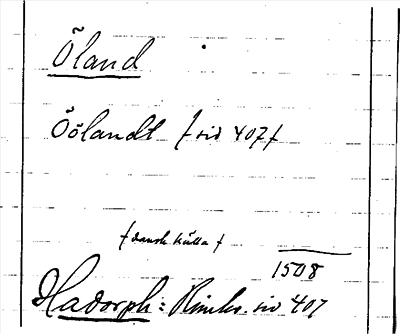 Öland
Öölandt /sid 407/
/dansk källa/
1508
Hadorph: Rimkr. sid 407